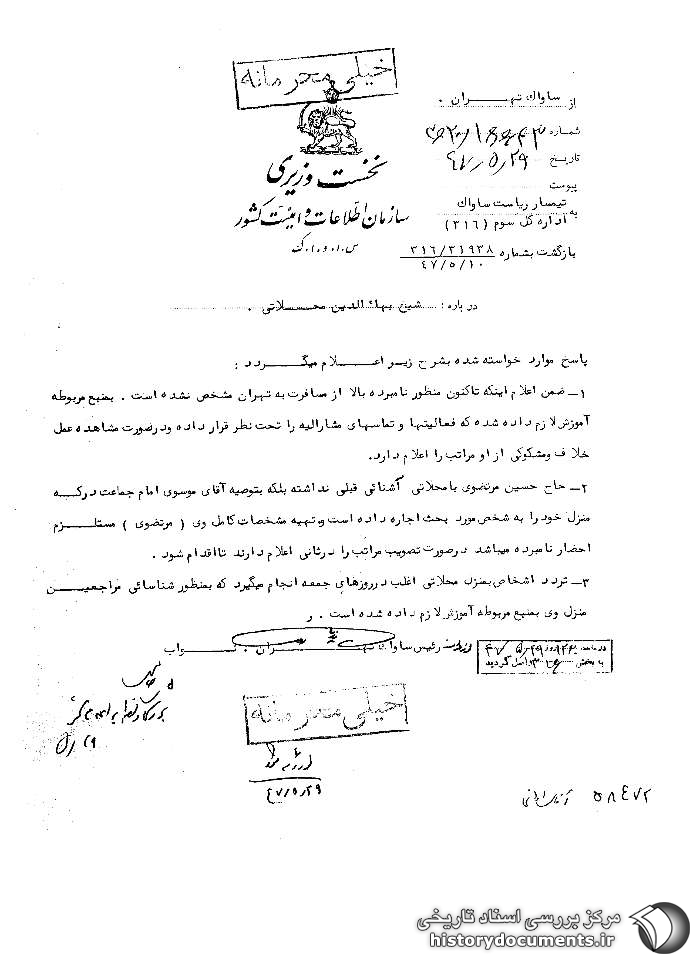 خیلی محرمانه
نخست وزیری
سازمان اطلاعات و امنیت کشور
از ساواک تهران .
شماره
تاریخ ۴۷/۵/۲۹
پیوست
تیمسار ریاست ساواک
به اداره کل سوم (۳۱۶)
بازگشت بشماره ۳۱۶/۳۱۹۳۸
۴۷/۵/۱۰
درباره : شیخ بهاء الدین محلاتی .
پاسخ موارد خواسته شده بشرح زیر اعلام میگردد :
۱ــ ضمن اعلام اینکه تاکنون منظور نامبرده بالا از مسافرت به تهران مشخص نشده است . بمنبع مربوطه
آموزش لازم داده شده که فعالیتها و تماسهای مشارالیه را تحت نظر قرار داده ودرصورت مشاهده عمل
خلاف ومشکوکی از او مراتب را اعلام دارد.
۲ــ حاج حسین مرتضوی با محلاتی آشنائی قبلی نداشته بلکه بتوصیه آقای موسوی امام جماعت درکه
منزل خود را به شخص مورد بحث اجاره داده است و تهیه مشخصات کامل وی ( مرتضوی ) مستلزم
احضار نامبرده میباشد درصورت تصویب مراتب را درثانی اعلام دارند تااقدام شود .
۳ــ تردد اشخاص بمنزل محلاتی اغلب درروزهای جمعه انجام میگیرد که بمنظور شناسائی مراجعین
منزل وی بمنبع مربوطه آموزش لازم داده شده است . ر
رئیس ساواک تهران . نواب
خیلی محرمانه
۴۷/۵/۲۹
۵۸۴۷۲
مرکز بررسی اسناد تاریخی
historydocuments.ir